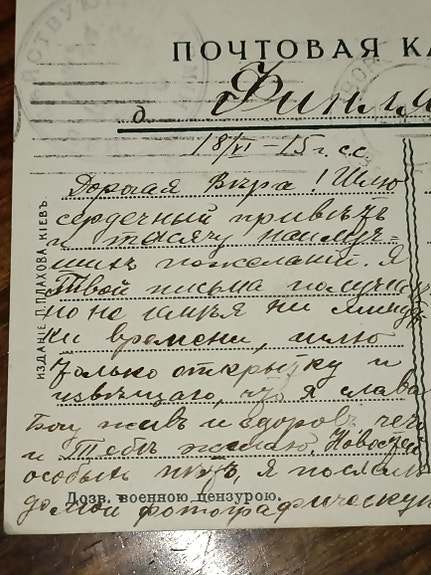 ПОЧТОВАЯ КА
Финл
д.
18/VI–15 г. с.с.
Дорогая Вѣра! Шлю
сердечный привѣтъ
и тысячу наилуч-
шихъ пожеланій. Я
Твои письма получаю,
но не имѣя ни минут
ки времени, шлю
только открытку и
извѣщаю, что я слава
Богу живъ и здоровъ чего
и Тебѣ желаю. Новостей
особыхъ нѣтъ. Я послалъ
домой фотографическую
Дозв. военною цензурою.
ИЗДАНІЕ Д. П. ПЛАХОВА, КІЕВЪ.